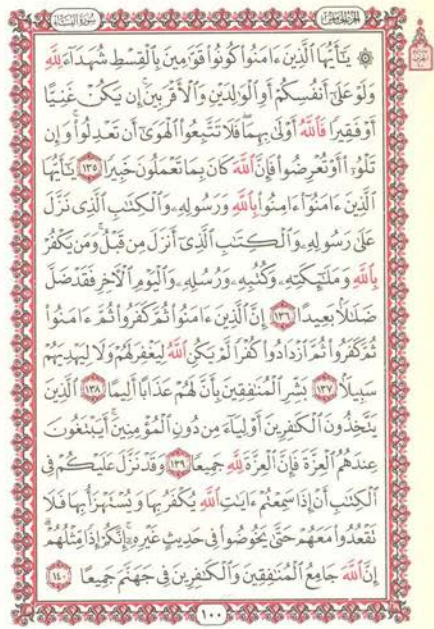 سُورَةُ النِّسَاءِ
الجُزْءُ الخَامِسُ
۞ يَٰٓأَيُّهَا ٱلَّذِينَ ءَامَنُوا۟ كُونُوا۟ قَوَّٰمِينَ بِٱلْقِسْطِ شُهَدَآءَ لِلَّهِ
وَلَوْ عَلَىٰٓ أَنفُسِكُمْ أَوِ ٱلْوَٰلِدَيْنِ وَٱلْأَقْرَبِينَ ۚ إِن يَكُنْ غَنِيًّا
أَوْ فَقِيرًا فَٱللَّهُ أَوْلَىٰ بِهِمَا ۖ فَلَا تَتَّبِعُوا۟ ٱلْهَوَىٰٓ أَن تَعْدِلُوا۟ ۚ وَإِن
تَلْوُۥٓا۟ أَوْ تُعْرِضُوا۟ فَإِنَّ ٱللَّهَ كَانَ بِمَا تَعْمَلُونَ خَبِيرًا ١٣٥ يَٰٓأَيُّهَا
ٱلَّذِينَ ءَامَنُوٓا۟ ءَامِنُوا۟ بِٱللَّهِ وَرَسُولِهِۦ وَٱلْكِتَٰبِ ٱلَّذِى نَزَّلَ
عَلَىٰ رَسُولِهِۦ وَٱلْكِتَٰبِ ٱلَّذِىٓ أَنزَلَ مِن قَبْلُ ۚ وَمَن يَكْفُرْ
بِٱللَّهِ وَمَلَٰٓئِكَتِهِۦ وَكُتُبِهِۦ وَرُسُلِهِۦ وَٱلْيَوْمِ ٱلْءَاخِرِ فَقَدْ ضَلَّ
ضَلَٰلًۢا بَعِيدًا ١٣٦ إِنَّ ٱلَّذِينَ ءَامَنُوا۟ ثُمَّ كَفَرُوا۟ ثُمَّ ءَامَنُوا۟
ثُمَّ كَفَرُوا۟ ثُمَّ ٱزْدَادُوا۟ كُفْرًا لَّمْ يَكُنِ ٱللَّهُ لِيَغْفِرَ لَهُمْ وَلَا لِيَهْدِيَهُمْ
سَبِيلًۢا ١٣٧ بَشِّرِ ٱلْمُنَٰفِقِينَ بِأَنَّ لَهُمْ عَذَابًا أَلِيمًا ١٣٨ ٱلَّذِينَ
يَتَّخِذُونَ ٱلْكَٰفِرِينَ أَوْلِيَآءَ مِن دُونِ ٱلْمُؤْمِنِينَ ۚ أَيَبْتَغُونَ
عِندَهُمُ ٱلْعِزَّةَ فَإِنَّ ٱلْعِزَّةَ لِلَّهِ جَمِيعًا ١٣٩ وَقَدْ نَزَّلَ عَلَيْكُمْ فِى
ٱلْكِتَٰبِ أَنْ إِذَا سَمِعْتُمْ ءَايَٰتِ ٱللَّهِ يُكْفَرُ بِهَا وَيُسْتَهْزَأُ بِهَا فَلَا
تَقْعُدُوا۟ مَعَهُمْ حَتَّىٰ يَخُوضُوا۟ فِى حَدِيثٍ غَيْرِهِۦٓ ۚ إِنَّكُمْ إِذًا مِّثْلُهُمْ ۗ
إِنَّ ٱللَّهَ جَامِعُ ٱلْمُنَٰفِقِينَ وَٱلْكَٰفِرِينَ فِى جَهَنَّمَ جَمِيعًا ١٤٠
١٠٠